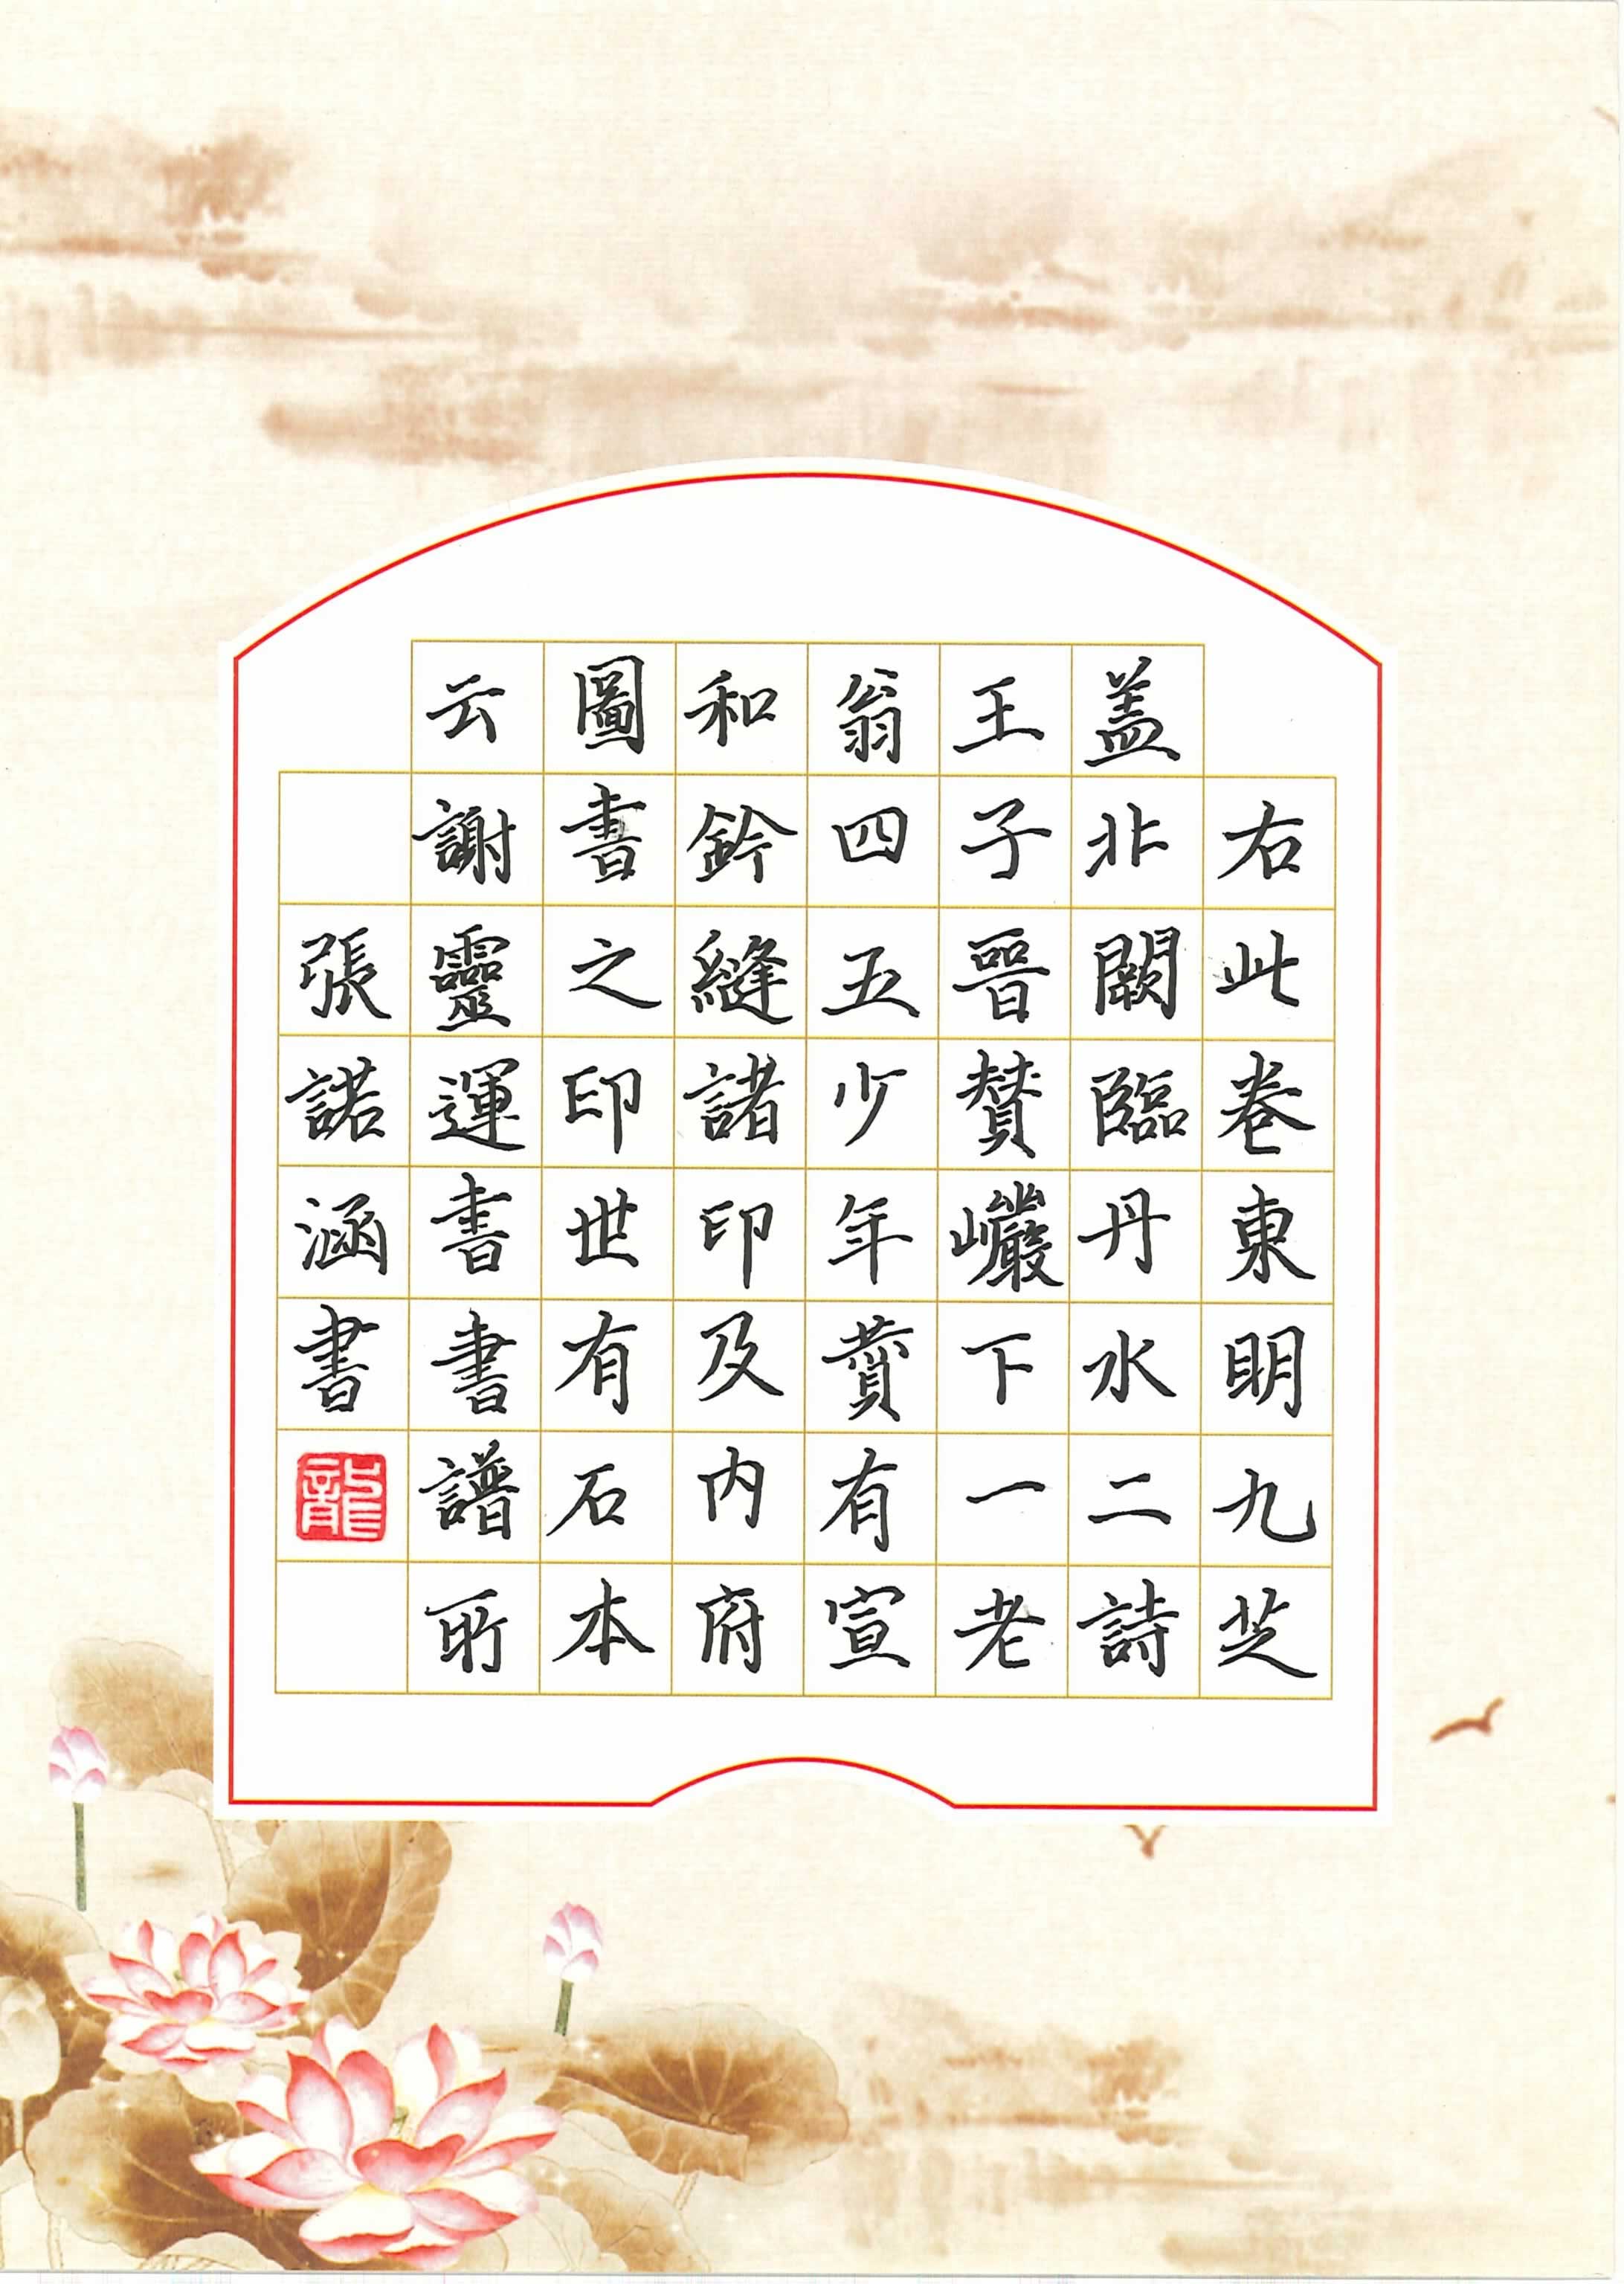 右此卷東明九芝
盖北闕臨丹水二詩
王子晉賛巗下一老
翁四五少年賛有宣
和鈐縫諸印及内府
圖書之印世有石本
云謝靈運書書譜所
張諾涵書
龍